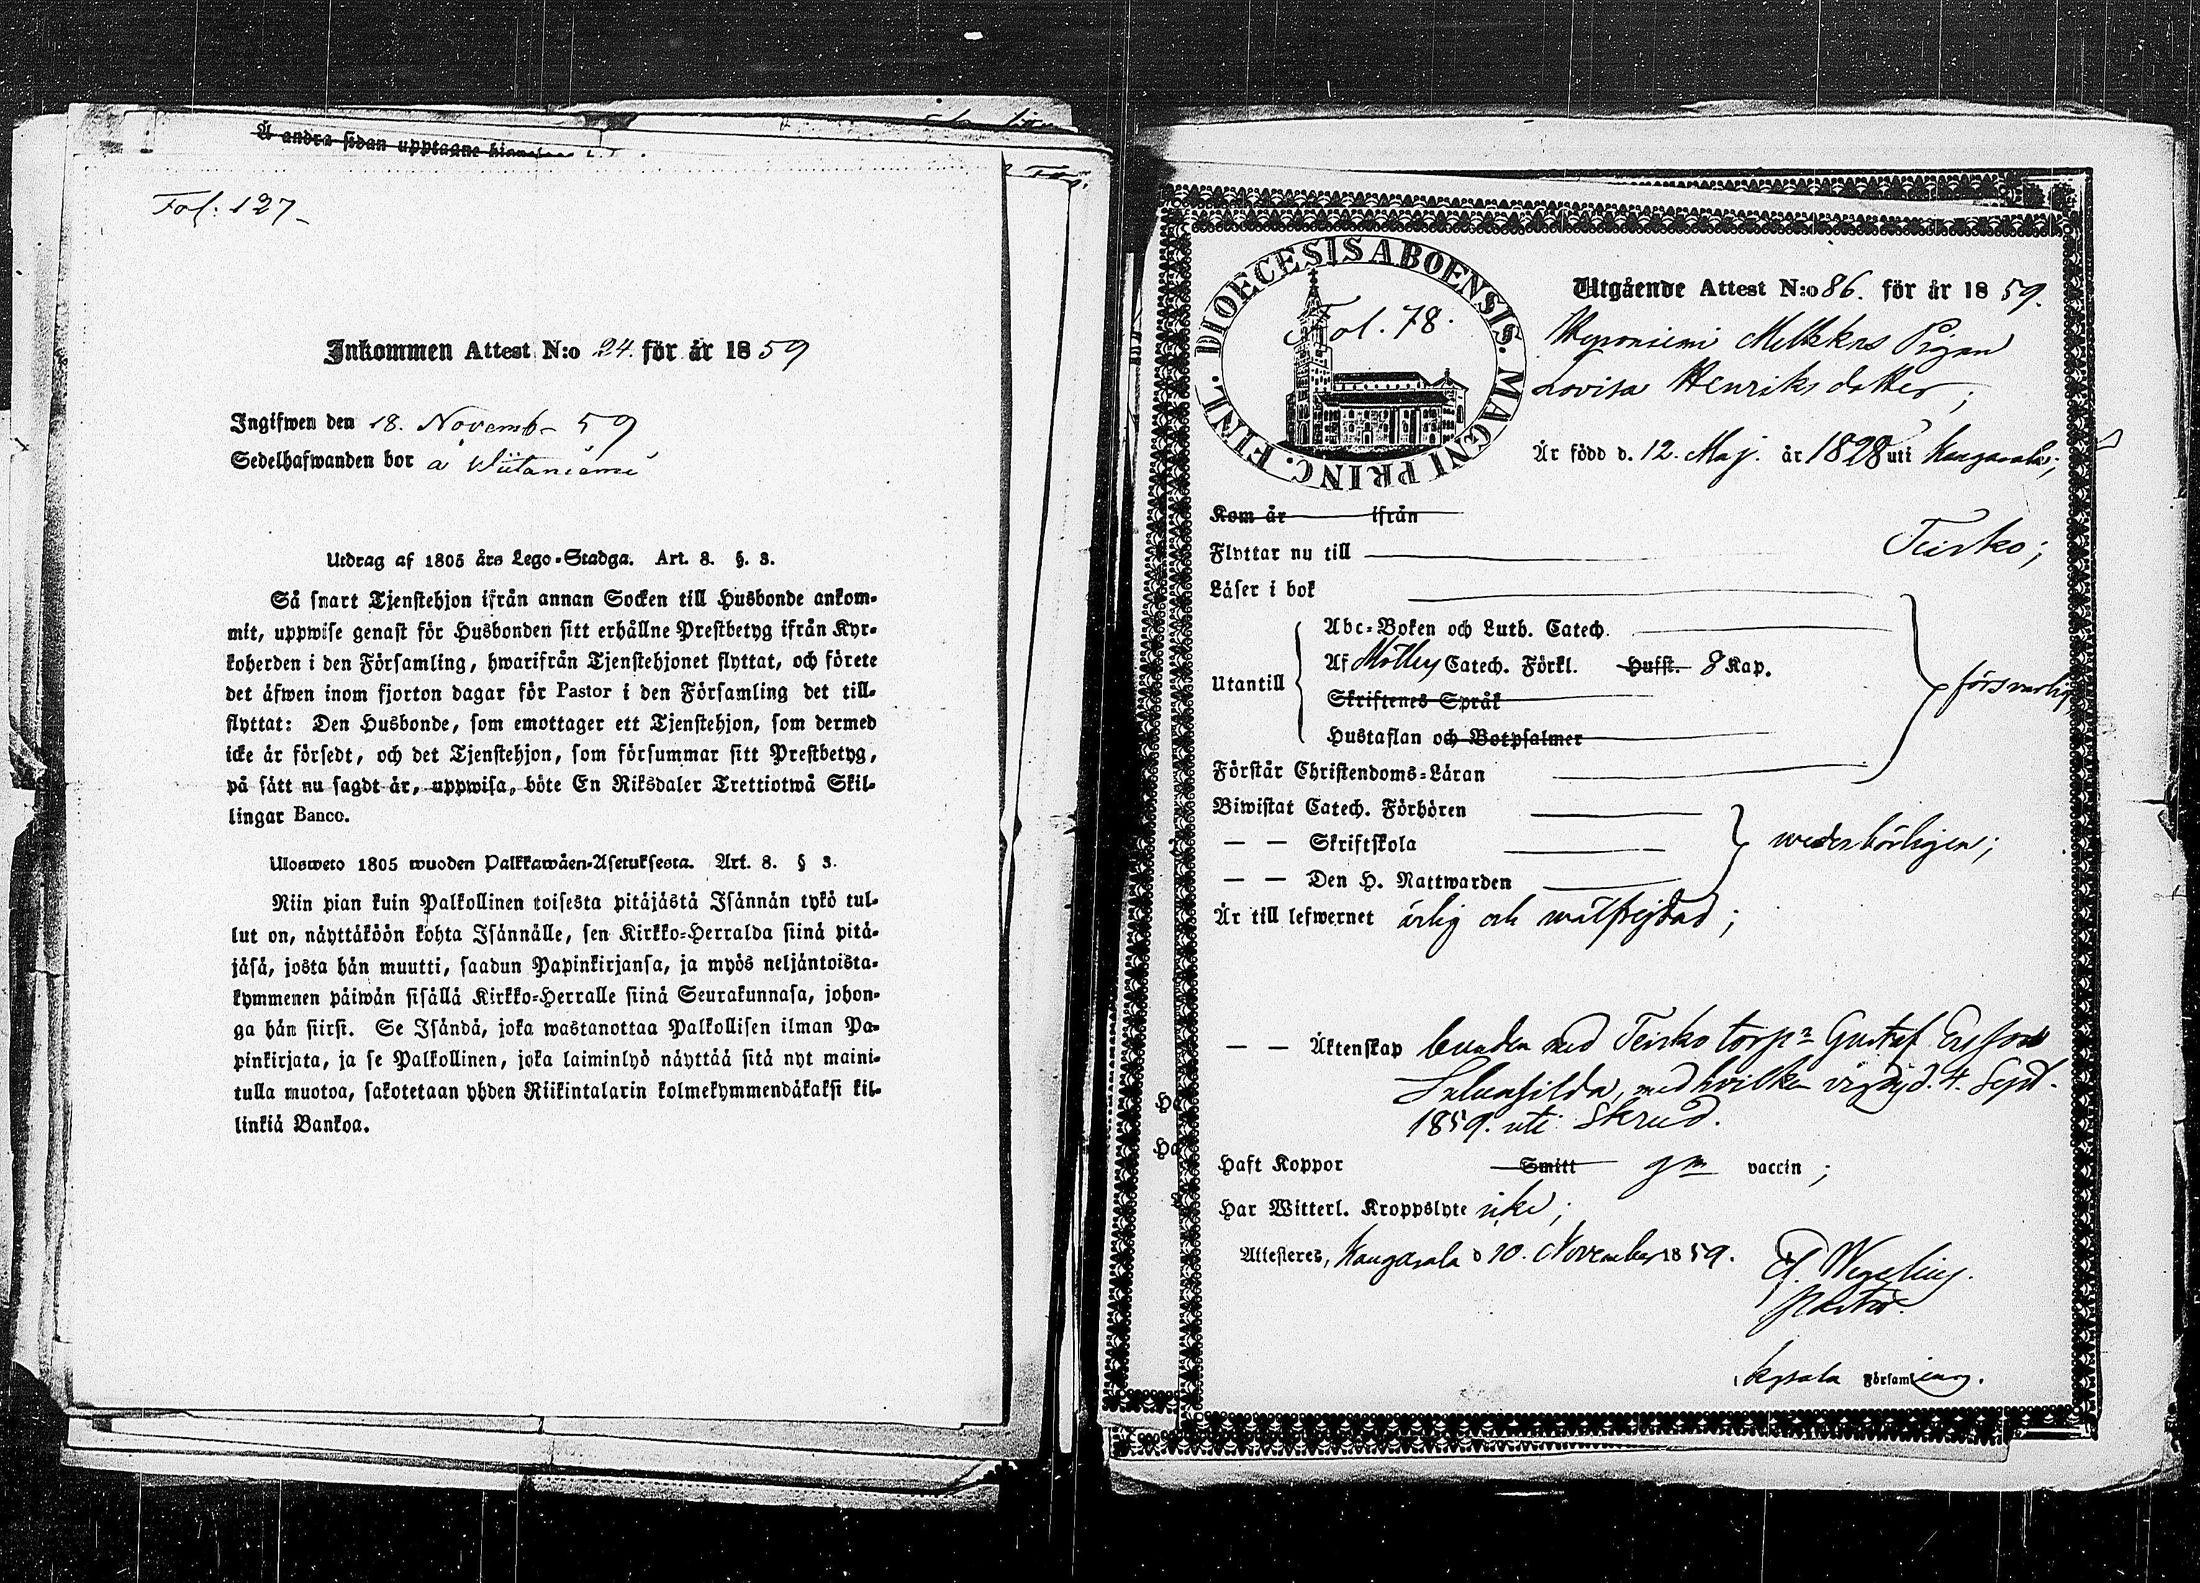 Å andra sidan upptagne
Fol. 127
Inkommen Attest N:o 24. för år 1859
Ingifwen den 18. Novemb- 59
Sedelhafwanden bor å Wiitaniemi
Utdrag af 1805 års Lego-Stadga. Art. 8. §. 3.
Så snart Tjenstehjon ifrån annan Socken till Husbonde ankom-
mit, uppwise genast för Husbonden sitt erhållne Prestbetyg ifrån Kyr-
koherden i den Församling, hwarifrån Tjenstehjonet flyttat, och förete
det äfwen inom fjorton dagar för Pastor i den Församling det till-
flyttat: Den Husbonde, som emottager ett Tjenstehjon, som dermed
icke är försedt, och det Tjenstehjon, som försummar sitt Prestbetyg,
på sätt nu sagdt är, uppwisa, böte En Riksdaler Trettiotwå Skil-
lingar Banco.
Ulosweto 1805 wuoden Palkkawäen-Asetuksesta. Art. 8. § 3.
Niin pian kuin Palkollinen toisesta pitäjästä Isännän tykö tul-
lut on, näyttäköön kohta Isännälle, sen Kirkko-Herralda siinä pitä-
jäsä, josta hän muutti, saadun Papinkirjansa, ja myös neljäntoista-
kymmenen päiwän sisällä Kirkko-Herralle siinä Seurakunnasa, johon-
ga hän siirsi. Se Isändä, joka wastanottaa Palkollisen ilman Pa-
pinkirjata, ja se Palkollinen, joka laiminlyö näyttää sitä nyt maini-
tulla muotoa, sakotetaan yhden Riikintalarin kolmekymmendäkaksi kil-
linkiä Bankoa.
DIOECESIS ABOENSIS. MAGNI PRINC. FINL.
Fol. 78.
Utgående Attest N:o 86. för år 1859.
Heponiemi Pigan
Lovisa Henriksdotter;
Är född d. 12. Maj. år 1828 uti Kangasala;
Kom år ifrån
Flyttar nu till Teisko;
Läser i bok
Abc-Boken och Luth. Catech.
Utantill
Af Catech. Förkl. Husst. 8 Kap.
Skriftenes Språk
Hustaflan och Botpsalmer
försvarlig
Förstår Christendoms-Läran
Biwistat Catech. Förhören
— — Skriftskola wederbörligen;
— — Den H. Nattwarden
Är till lefwernet ärlig och wälfrejdad;
— — Äktenskap bunden med Teisko torp Gustaf
med hvilken vigdes d. 4. Sept.
1859. uti Skrud.
Haft Koppor Smitt gm vaccin;
Har Witterl. Kroppslyte icke;
Attesteres, Kangasala d 10. November 1859.
Wegelius.
Pastor
i Kgsala Församling.